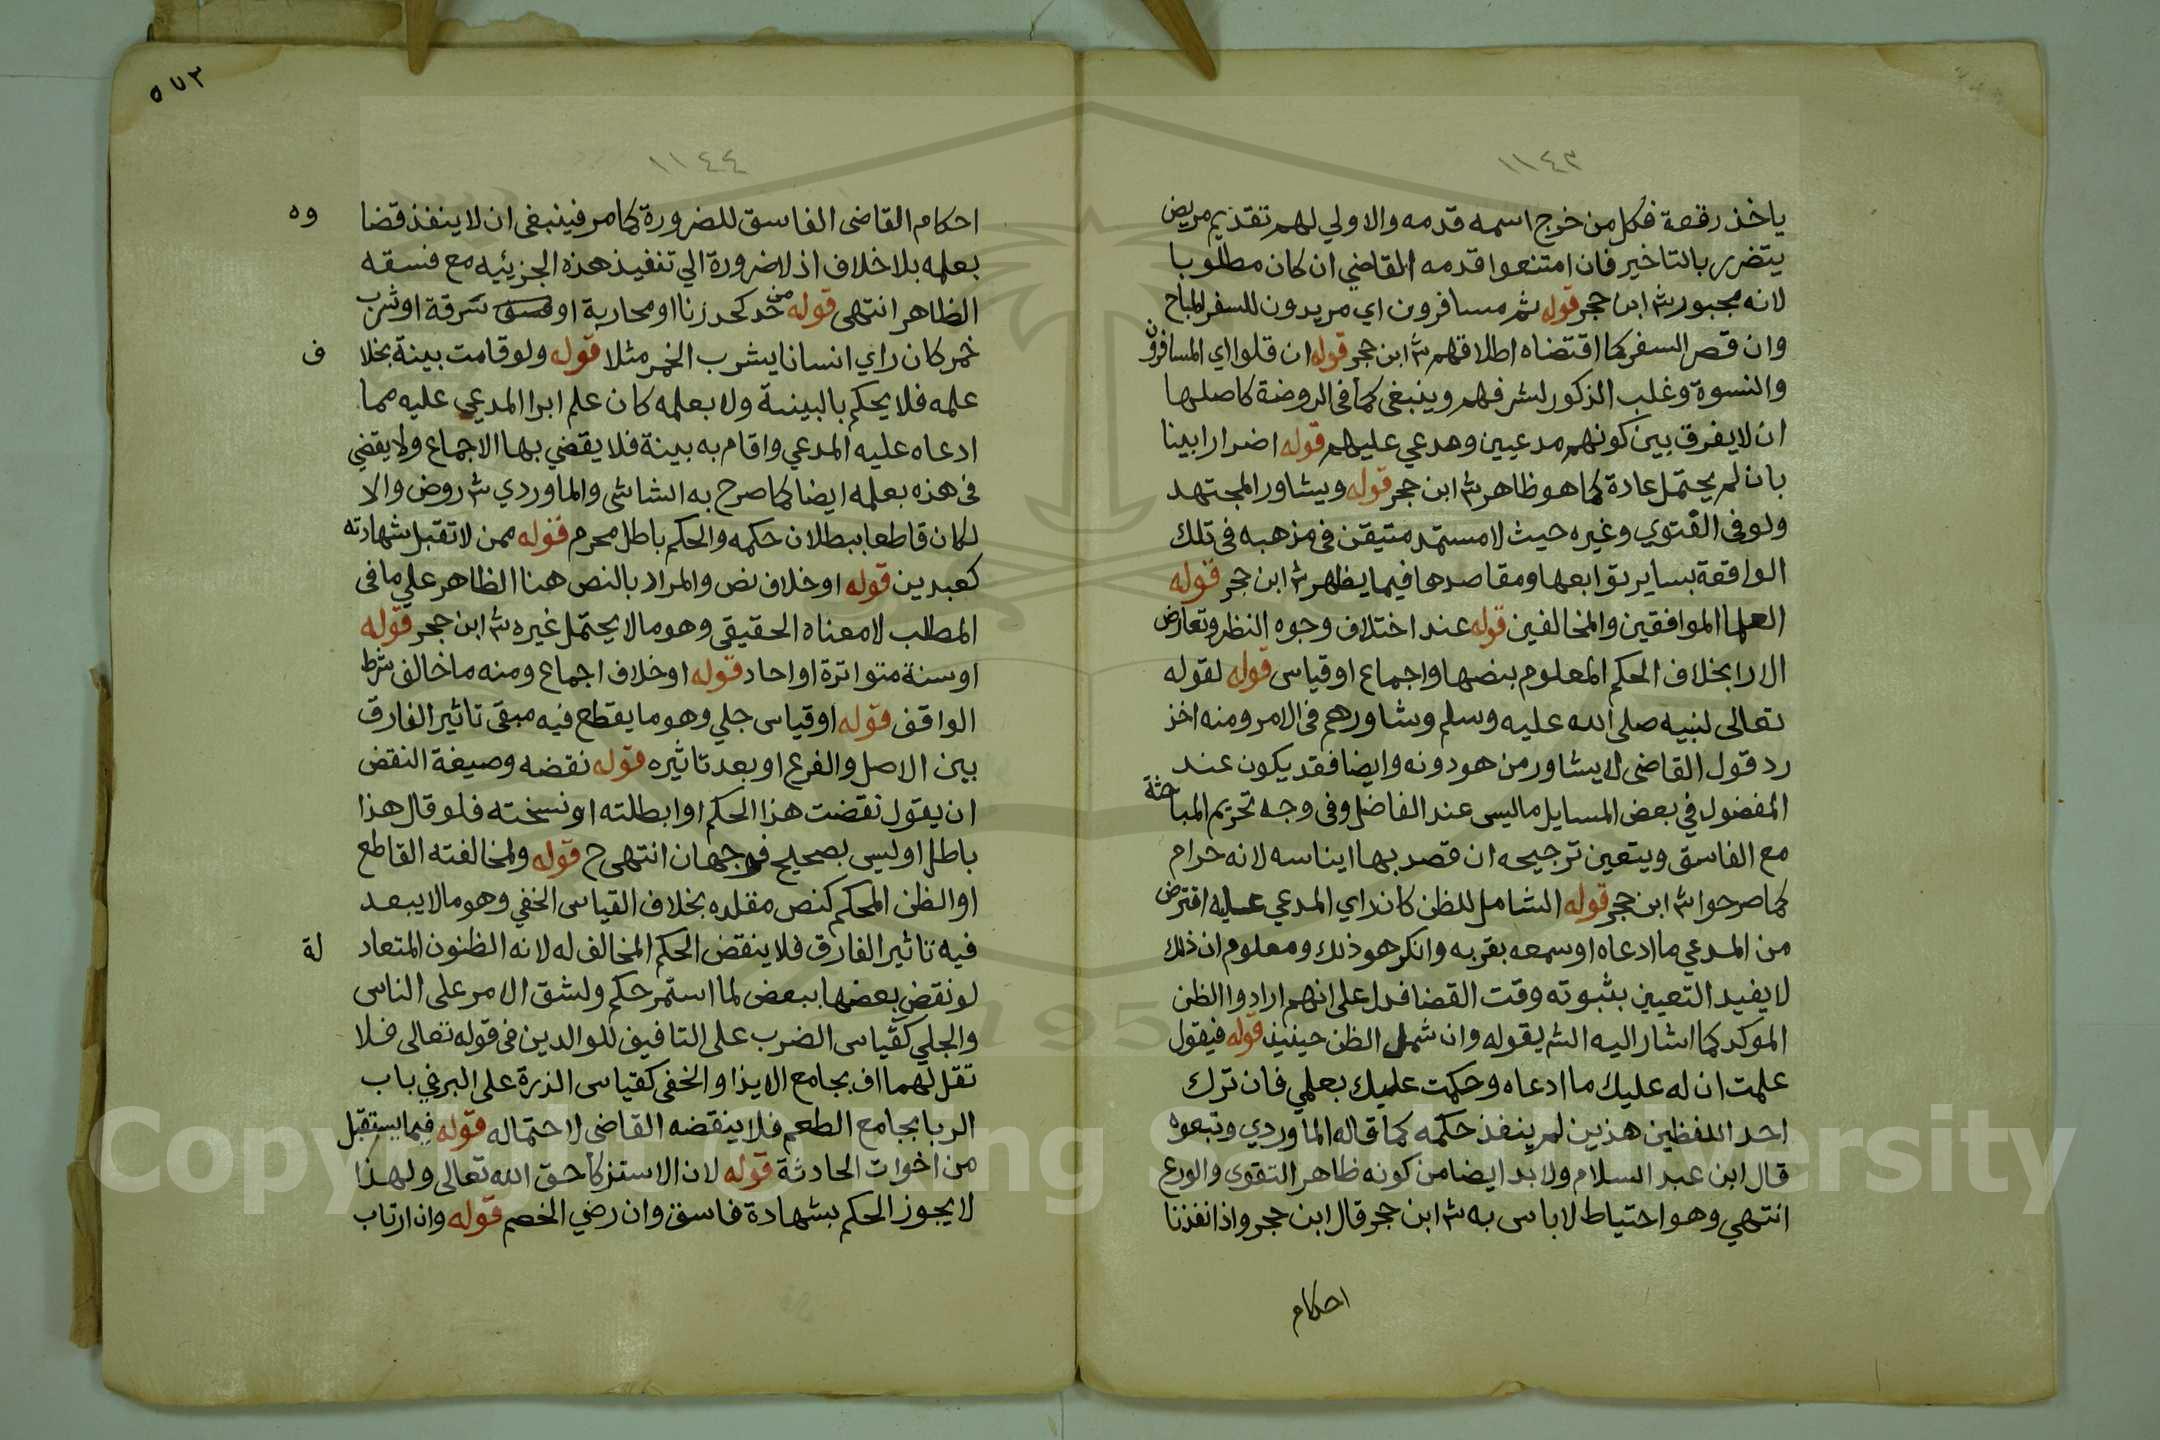 ١١٤٣
ياخذ رقعة فكل من خرج اسمه قدمه والاولي لهم تقديم مريض
يتضرر بالتاخير فان امتنعوا قدمه القاضي ان كان مطلوبا
لانه مجبور ش ابن حجر قوله ثم مسافرون اي مريدون للسفر المباح
وان قصر السفر كما اقتضاه اطلاقهم ش ابن حجر قوله ان قلوا اي المسافرون
والنسوة وغلب الذكور لشرفهم وينبغي كما في الروضة كاصلها
ان لا يفرق بين كونهم مدعيين ومدعي عليهم قوله اضرارا بينا
بان لم يحتمل عادة كما هو ظاهر ش ابن حجر قوله ويشاور المجتهد
ولو في الفتوي وغيره حيث لا مستمد متيقن في مذهبه في تلك
الواقعة بساير توابعها ومقاصدها فيما يظهر ش ابن حجر قوله
العلما الموافقين والمخالفين قوله عند اختلاف وجوه النظر وتعارض
الارا بخلاف الحكم المعلوم بنصها واجماع او قياس قوله لقوله
تعالى لنبيه صلى الله عليه وسلم وشاورهم في الامر ومنه اخذ
رد قول القاضي لا يشاور من هو دونه وايضا فقد يكون عند
المفضول في بعض المسايل ما ليس عند الفاضل وفي وجه تحريم المباحثة
مع الفاسق ويتعين ترجيحه ان قصد بها ايناسه لانه حرام
كما صرحوا ش ابن حجر قوله الشامل للظن كان راي المدعي عليه اقترض
من المدعي ما ادعاه او سمعه يقر به وانكر هو ذلك ومعلوم ان ذلك
لا يفيد التعيين بثبوته وقت القضا فدل على انهم ارادوا الظن
الموكد كما اشار اليه الش يقوله وان شمل الظن حينيذ قوله فيقول
علمت ان له عليك ما ادعاه وحكمت عليك بعلمي فان ترك
احد اللفظين هذين لم ينفذ حكمه كما قاله الماوردي وتبعوه
قال ابن عبد السلام ولا بد ايضا من كونه ظاهر التقوى والورع
انتهي وهو احتياط لا باس به ش ابن حجر قال ابن حجر واذا نفذنا
احكام
٥٧٣
١١٤٤
احكام القاضي الفاسق للضرورة كما مر فينبغي ان لا ينفذ قضاوه
بعلمه بلا خلاف اذ لا ضرورة الي تنفيذ هذه الجزئيه مع فسقه
الظاهر انتهى قوله من حد كحد زنا او محاربة او سرقة او شرب
خمر كان راي انسانا يشرب الخمر مثلا قوله ولو قامت بينة بخلاف
علمه فلا يحكم بالبينة ولا بعلمه كان علم ابرا المدعي عليه مما
ادعاه عليه المدعي واقام به بينة فلا يقضي بها الاجماع ولا يقضي
في هذه بعلمه ايضا كما صرح به الشاشي والماوردي ش روض والا
لكان قاطعا ببطلان حكمه والحكم باطل محرم قوله ممن لا تقبل شهادته
كعبدين قوله او خلاف نص والمراد بالنص هنا الظاهر علي ما في
المطلب لا معناه الحقيقي وهو ما لا يحتمل غيره ش ابن حجر قوله
او سنة متواترة او احاد قوله او خلاف اجماع ومنه ما خالف شرط
الواقف قوله او قياس جلي وهو ما يقطع فيه مبقى تاثير الفارق
بين الاصل والفرع او بعد تاثيره قوله نقضه وصيغة النقض
ان يقول نقضت هذا الحكم او ابطلته او نسخته فلو قال هذا
باطل او ليس بصحيح فوجهان انتهى ح قوله ولمخالفته القاطع
او الظن المحكم كنص مقلده بخلاف القياس الخفي وهو ما لا يبعد
فيه تاثير الفارق فلا ينقض الحكم المخالف له لانه الظنون المتعادلة
لو نقض بعضها ببعض لما استمر حكم ولشق الامر على الناس
والجلي كقياس الضرب على التافيف للوالدين في قوله تعالى فلا
تقل لهما اف بجامع الايذا والخفي كقياس الذرة على البر في باب
الربا بجامع الطعم فلا ينقضه القاضي لاحتماله قوله فيما يستقبل
من اخوات الحادثة قوله لان الاستزكا حق الله تعالى ولهذا
لا يجوز الحكم بشهادة فاسق وان رضي الخصم قوله وان ارتاب
Copyright © King Saud University
1957